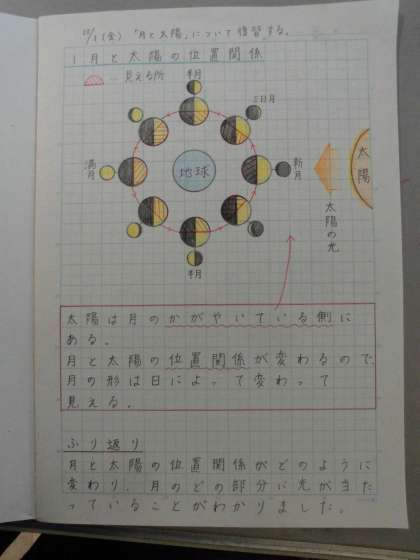 (金)「月と太陽」について復習する。
1 月と太陽の位置関係
…見える所
半月
三日月
満月
地球
新月
太陽
太陽の光
半月
太陽は月のかがやいている側に
ある。
月と太陽の位置関係が変わるので
月の形は日によって変わって
見える。
ふり返り
月と太陽の位置関係がどのように
変わり、月のどの部分に光が当た
っていることがわかりました。